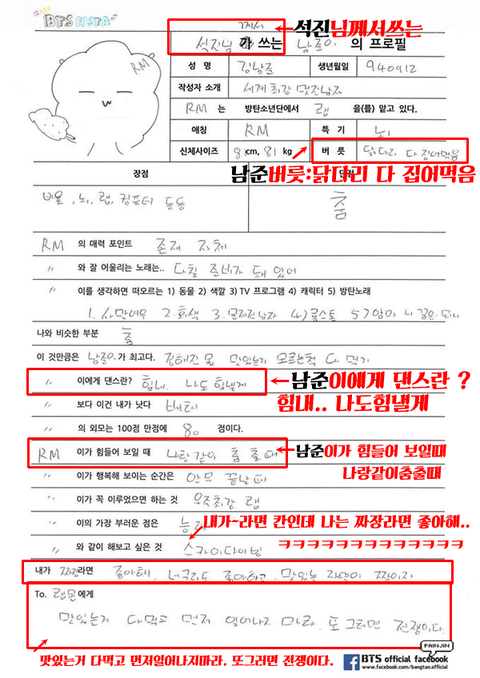 BTS FESTA
그께서 ←석진님께서쓰는
석진님 가 쓰는 남준이 의 프로필
RM
성 명 김남준 생년월일 940912
작성자 소개 세계최강 멋진남자
RM 는 방탄소년단에서 랩 을(를) 맡고 있다.
애칭 RM 특 기 뇌
신체사이즈 8 cm, 81 kg 버 릇 닭다리 다 집어먹음
남준버릇:닭다리 다 집어먹음
장점
비율, 뇌, 랩, 컴퓨터 등등 춤
RM 의 매력 포인트 존재 자체
〃 와 잘 어울리는 노래는.. 다칠 준비가 돼 있어
〃 이를 생각하면 떠오르는 1) 동물 2) 색깔 3) TV 프로그램 4) 캐릭터 5) 방탄노래
1. 사막여우 2. 회색 3. 문제적남자
나와 비슷한 부분 춤
이 것만큼은 남준이가 최고다. 맛있는지 모르는척 다 먹기
〃 이에게 댄스란? 힘내. 나도 힘낼게 ←남준이에게 댄스란 ?
힘내.. 나도힘낼게
〃 보다 이건 내가 낫다
〃 의 외모는 100점 만점에 80 점이다.
RM 이가 힘들어 보일 때 나랑 같이 춤 출 때 ←남준이가 힘들어 보일때
나랑같이춤출때
〃 이가 행복해 보이는 순간은 안무 끝날때
〃 이가 꼭 이루었으면 하는 것 우주최강 랩
〃 이의 가장 부러운 점은
내가~라면 칸인데 나는 짜장라면 좋아해..
〃 와 같이 해보고 싶은 것 스카이다이빙 ㅋㅋㅋㅋㅋㅋㅋㅋㅋㅋㅋㅋㅋ
내가 짜장라면 좋아해, 너구리도 좋아하고, 맛있는 라면이 짱이지
To. 랩몬에게
맛있는거 다먹고 먼저 일어나지 마라. 또 그러면 전쟁이다.
맛있는거 다먹고 먼저일어나지마라. 또그러면 전쟁이다.
PAINJIN
f BTS official facebook
www.facebook.com/bangtan.official